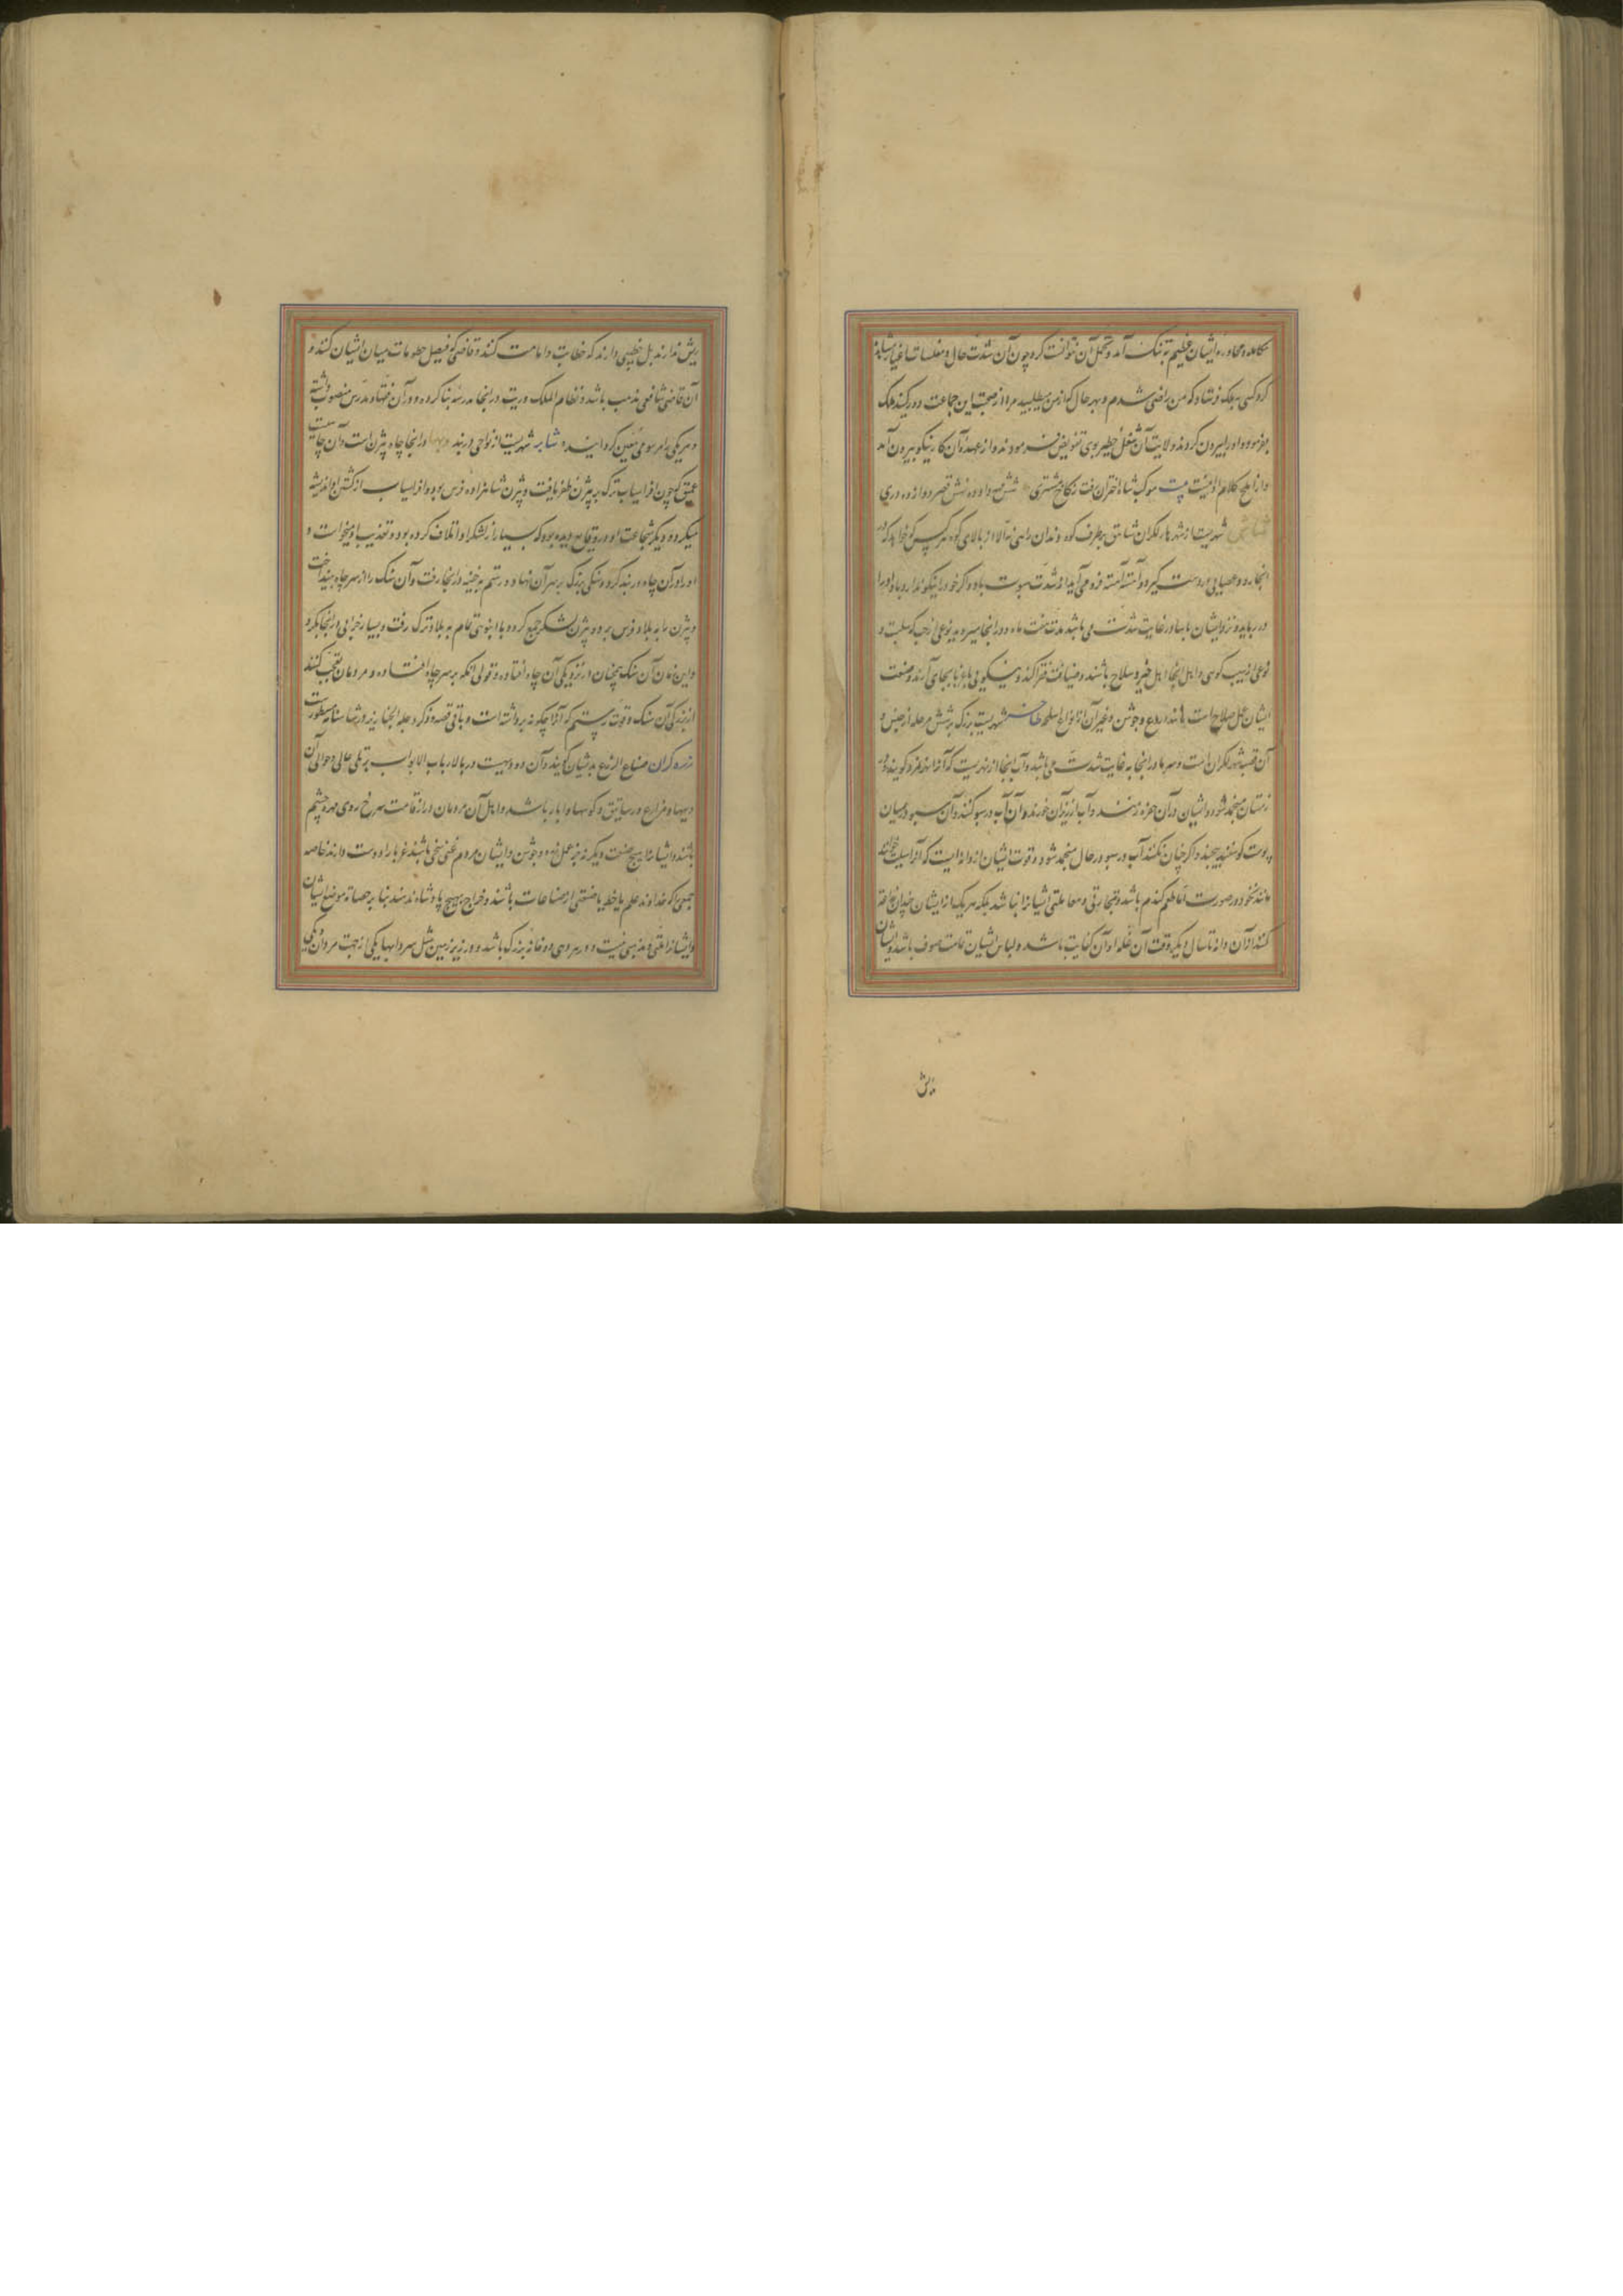 مکالمه و محاوره ایشان عظیم به تنک آمد و تحمل آن نتوانست کرد چون آن شدت حال و مقاسات اغیار
کرد کسی به ملک فرستاد که من راضی شدم و بهر حال که از من میطلبید مرا از صحبت این جماعت دور کنید ملک
بفرمود و او را بیرون کردند و ولایت آن شغل خطیر بوی تفویض فرمودند و از عهده آن کار نیکو بیرون آمد
و از املح کلام اوست بیت موکب شاه اختران رفت بکاخ مشتری شش مه داده ده نش قصر دوازده دری
شهریست از شهرهاء لکزان شاهق بر طرف کوه و ندان راهی نه الا از بالای کوه هر کس که خواهد که در
آنجا رود عصایی بر دست کیرد و آهسته آهسته فرو می آید از شدت هبوب باد و اکر خود را نیکو ندارد باد او را
در رباید و نزد ایشان باسا در غایت شدت می باشد مدت هفت ماه و در آنجا میروید نوعی از حب که سلت و
نوعی از سیب کوهی و اهل آنجا اهل خیر و صلاح باشند و ضیافت فقرا کنند و نیکویی با غربا بجای آرند و صنعت
ایشان عمل سلاح است مانند دروع و جوشن و غیر آن از انواع اسلحه ظاخر شهریست بزرک بر شش مرحله از جنزه و
آن قصبه شهر لکزان است و سرما در آنجا به غایت شدت می باشد و آب آنجا از نهریست که آنرا ثمور کویند و در
زمستان منجمد شود و ایشان در آن حفره زنند و آب از زیر آن خورند و آن آب در سبو کنند و آن سبو در میان
پوست کوسفند پیچند و اکر چنان نکنند آب در سبو در حال منجمد شود و قوت ایشان از دانه ایست که آنرا سلت خوانند
مانند نخود در صورت اما طعم کندم باشد و تجارتی و معاملتی ایشانرا نباشد بلکه هر یک از ایشان چندان زراعت
کنند از آن دانه تا سال دیکر وقت آن غله او آن کفایت باشد و لباس ایشان تمامت صوف باشد و ایشان
رئیس ندارند بل خطیبی دارند که خطابت و امامت کنند و قاضی که فیصل حکومات میان ایشان کند و
آن قاضی شافعی مذهب باشد و نظام الملک وزیر در آنجا مدرسه بنا کرده و در آن فقها و مدرس منصوب داشته
و هر یکی را مرسومی معین کردانیده شابه شهریست از نواحی دربند و در آنجا چاه بیژن است و آن چاهیست
عمیق که چون افراسیاب ترک بر بیژن ظفر یافت و بیژن شاهزاده فرس بود و افراسیاب از کشتن او اندیشه
میکرد و دیکر شجاعت او در وقایع دیده بود که بسیار از لشکر او اتلاف کرده بود و تعذیب او میخواست و
او را در آن چاه در بند کرد و سنکی بزرک بر سر آن نهاد و رستم به خفیه در آنجا رفت و آن سنک را از سر چاه بینداخت
و بیژن را به بلاد فرس برد و بیژن لشکر جمع کرد و با انبوهی تمام به بلاد ترک رفت و بسیار خرابی در آنجا بکرد
و این زمان آن سنک همچنان در نزدیکی آن چاه افتاده و قولی آنکه بر سر چاه افتاده و مردمان تعجب کنند
از بزرکی آن سنک و قوت رستم که آنرا چکونه برداشته است و باقی قصه در ذکر رجله الجنابز در شاهنامه مسطور است
زره کران صناع الزرع بدیشان کویند و آن ده دهیست در بالاء باب الابواب بر تلی عالی و حوالی آن
دیهها و مزارع و رساتیق و کوهها و ابار باشد و اهل آن مردمان دراز قامت سرخ روی مهره چشم
باشند و ایشانرا هیچ صنعت دیکر نه جز عمل زره و جوشن و ایشان مردم غنی سخی باشند غربا را دوست دارند خاصه
جمعی را که خداوند علم یا خط یا صنعتی از صناعات باشند و خراج بهیچ پادشاه ندهند بنا بر حصانت موضع ایشان
و ایشانرا ملتی و مذهبی نیست و در هر دهی دو خانه بزرک باشد و در زیر زمین مثل سردابها یکی از جهت مردان و یکی